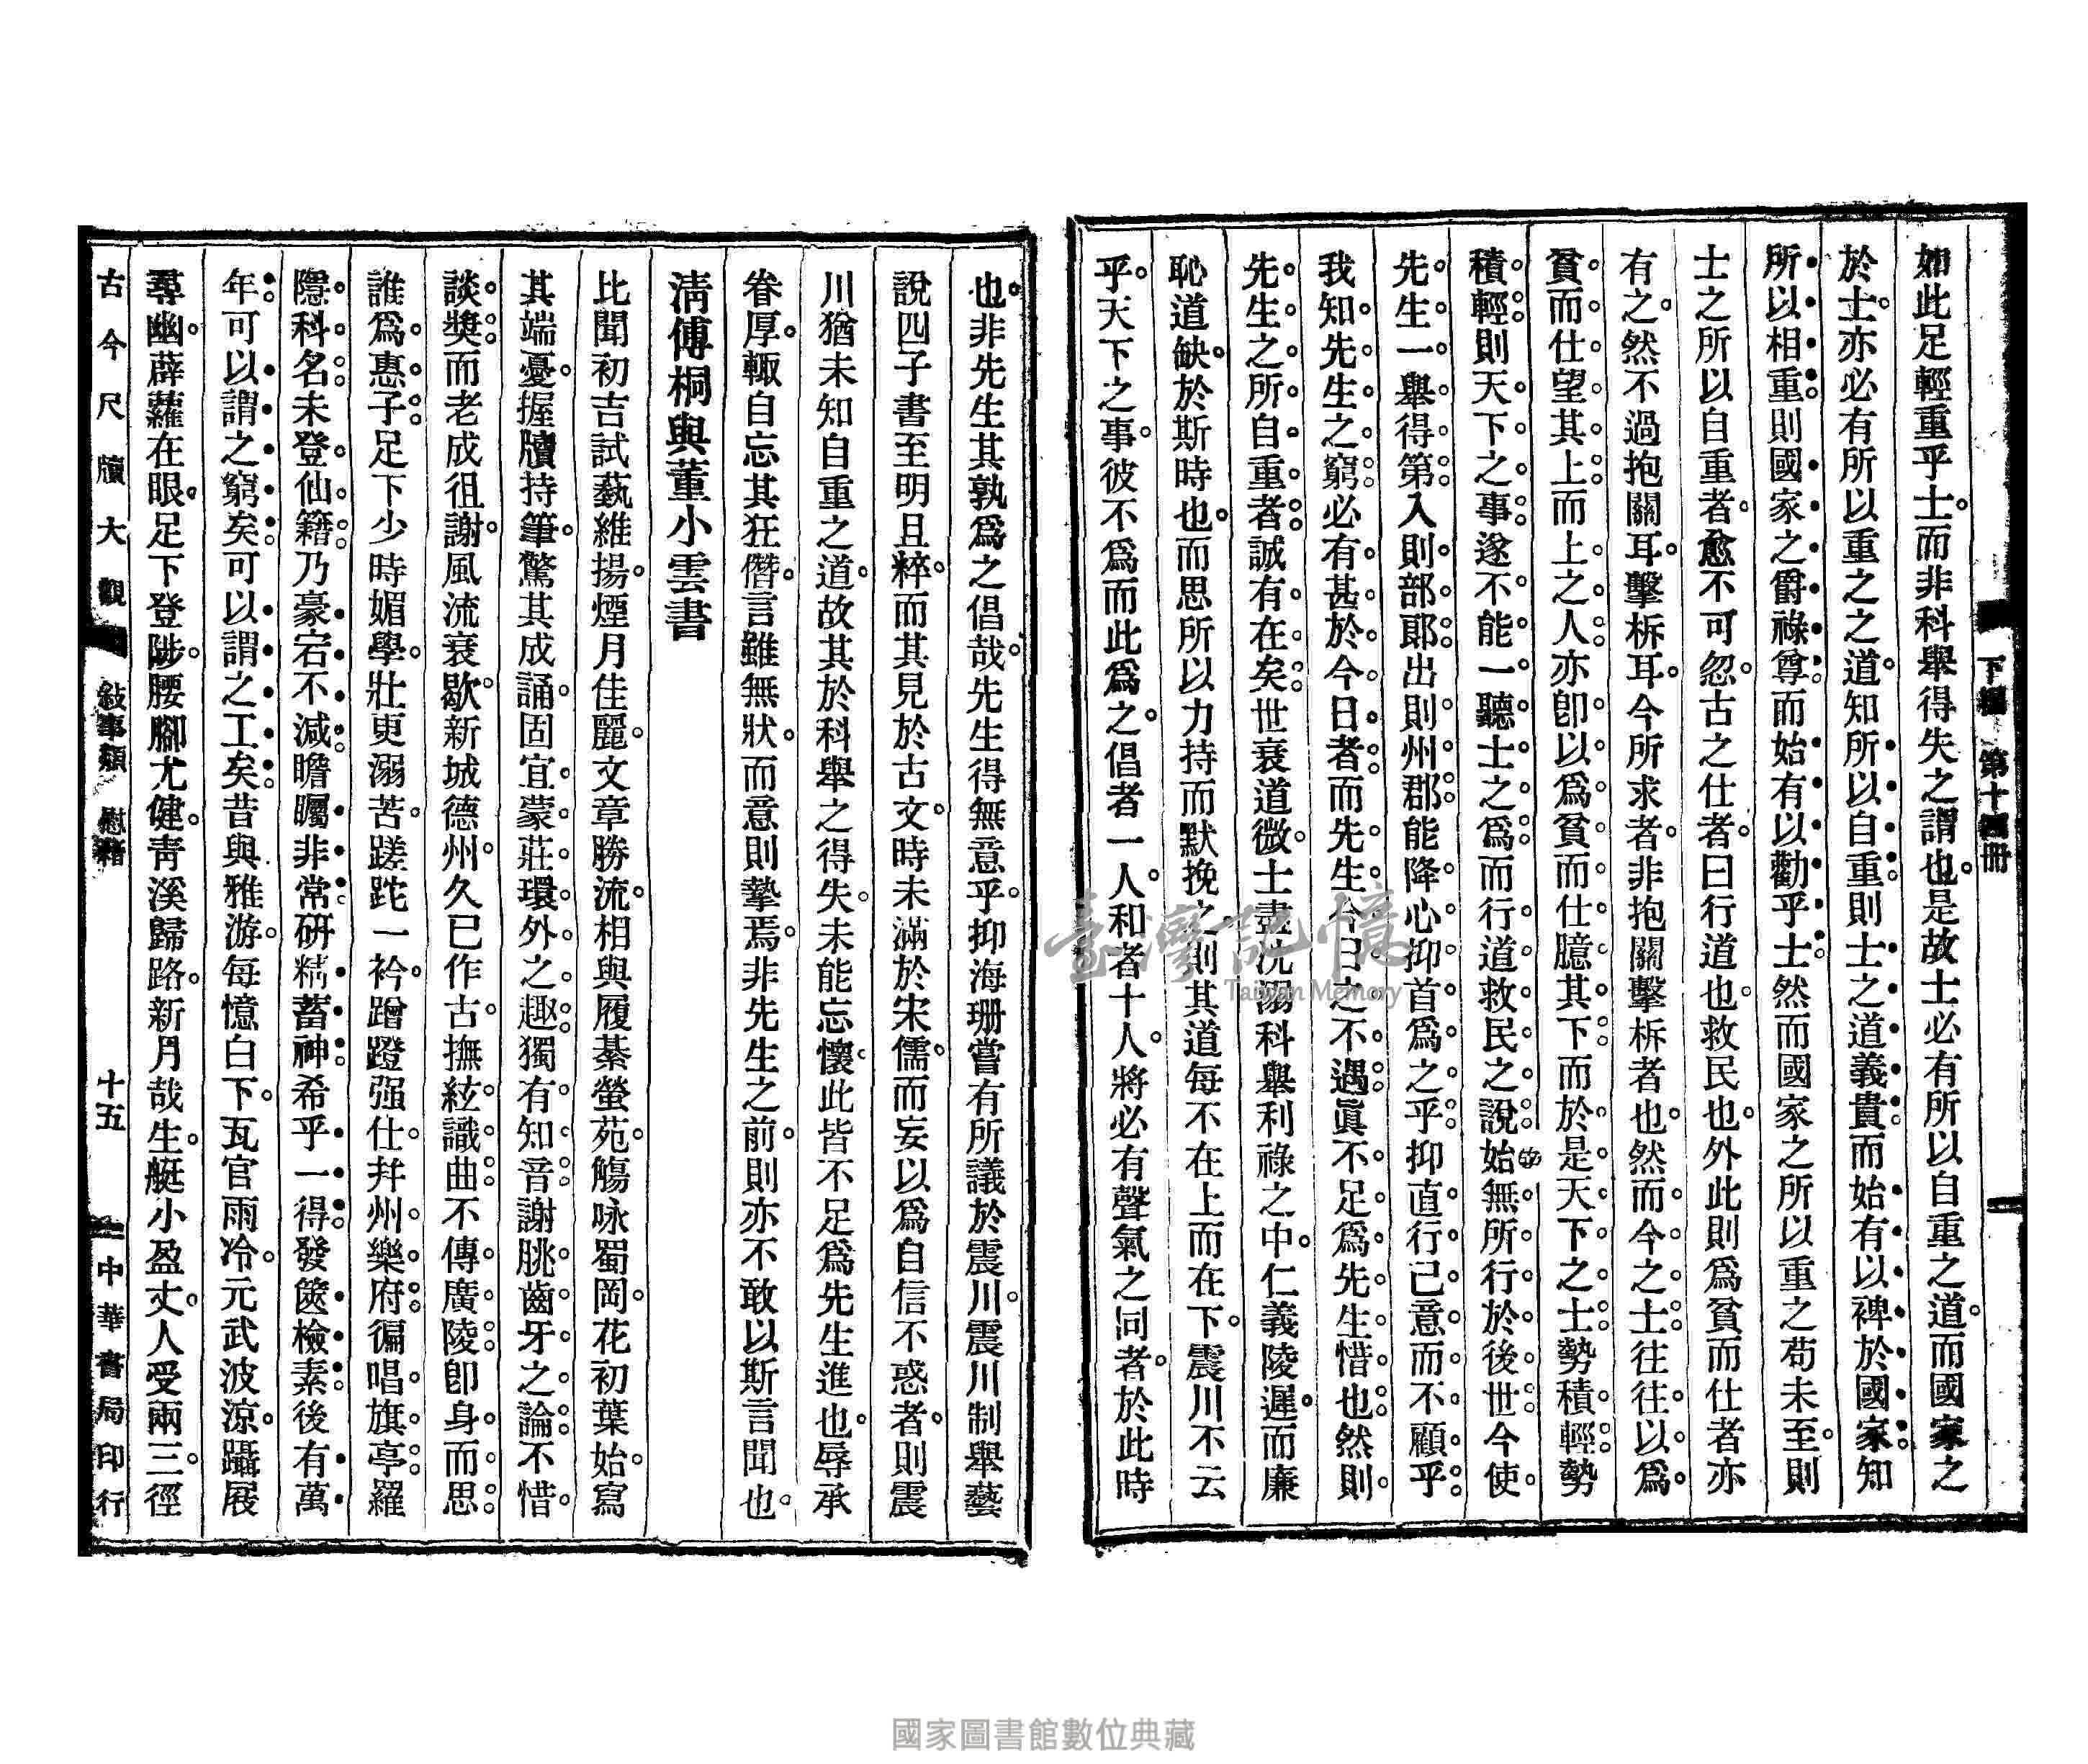 下編　第十四冊
如此足輕重乎士。而非科舉得失之謂也。是故士必有所以自重之道。而國家之
於士。亦必有所以重之之道。知所以自重。則士之道義貴而始有以裨於國家。知
所以相重。則國家之爵祿尊而始有以勸乎士。然而國家之所以重之苟未至。則
士之所以自重者。愈不可忽。古之仕者。曰行道也。救民也。外此則爲貧而仕者亦
有之。然不過抱關耳。擊柝耳。今所求者。非抱關擊柝者也。然而今之士往往以爲
貧而仕望其上。而上之人。亦卽以爲貧而仕臆其下。而於是天下之士勢積輕。勢
積輕。則天下之事遂不能一聽士之爲。而行道救民之說始無所行於後世。今使
先生一舉得第。入則部郞。出則州郡。能降心抑首爲之乎。抑直行己意而不顧乎。
我知先生之窮。必有甚於今日者。而先生今日之不遇。眞不足爲先生惜也。然則
先生之所自重者。誠有在矣。世衰道微。士盡沈溺科舉利祿之中。仁義陵遲。而廉
恥道缺。於斯時也。而思所以力持而默挽之。則其道每不在上而在下。震川不云
乎。天下之事。彼不爲而此爲之。倡者一人。和者十人。將必有聲氣之同者。於此時
也。非先生其孰爲之倡哉。先生得無意乎。抑海珊嘗有所議於震川。震川制舉藝
說四子書至明且粹。而其見於古文。時未滿於宋儒。而妄以爲自信不惑者。則震
川猶未知自重之道。故其於科舉之得失。未能忘懷。此皆不足爲先生進也。辱承
眷厚。輒自忘其狂僭。言雖無狀。而意則摯焉。非先生之前。則亦不敢以斯言聞也。
淸傅桐與董小雲書
比聞初吉試藝維揚。煙月佳麗。文章勝流。相與履綦螢苑。觴咏蜀岡。花初葉始。寫
其端憂。握牘持筆。驚其成誦。固宜蒙莊環外之趣。獨有知音。謝朓齒牙之論。不惜
談獎。而老成徂謝。風流衰歇。新城德州。久已作古。撫絃識曲。不傳廣陵。卽身而思。
誰爲惠子。足下少時媚學。壯更溺苦。蹉跎一衿。蹭蹬强仕。幷州樂府。徧唱旗亭。羅
隱科名。未登仙籍。乃豪宕不減。瞻矚非常。硏精蓄神。希乎一得。發篋檢素。後有萬
年。可以謂之窮矣。可以謂之工矣。昔與雅游。每憶白下。瓦官雨冷。元武波涼。躡展
尋幽。薜蘿在眼。足下登陟。腰腳尤健。靑溪歸路。新月哉生。艇小盈丈。人受兩三。徑
古今尺牘大觀　敍事類　慰藉　十五　中華書局印行
臺灣記憶
Taiwan Memory
國家圖書館數位典藏